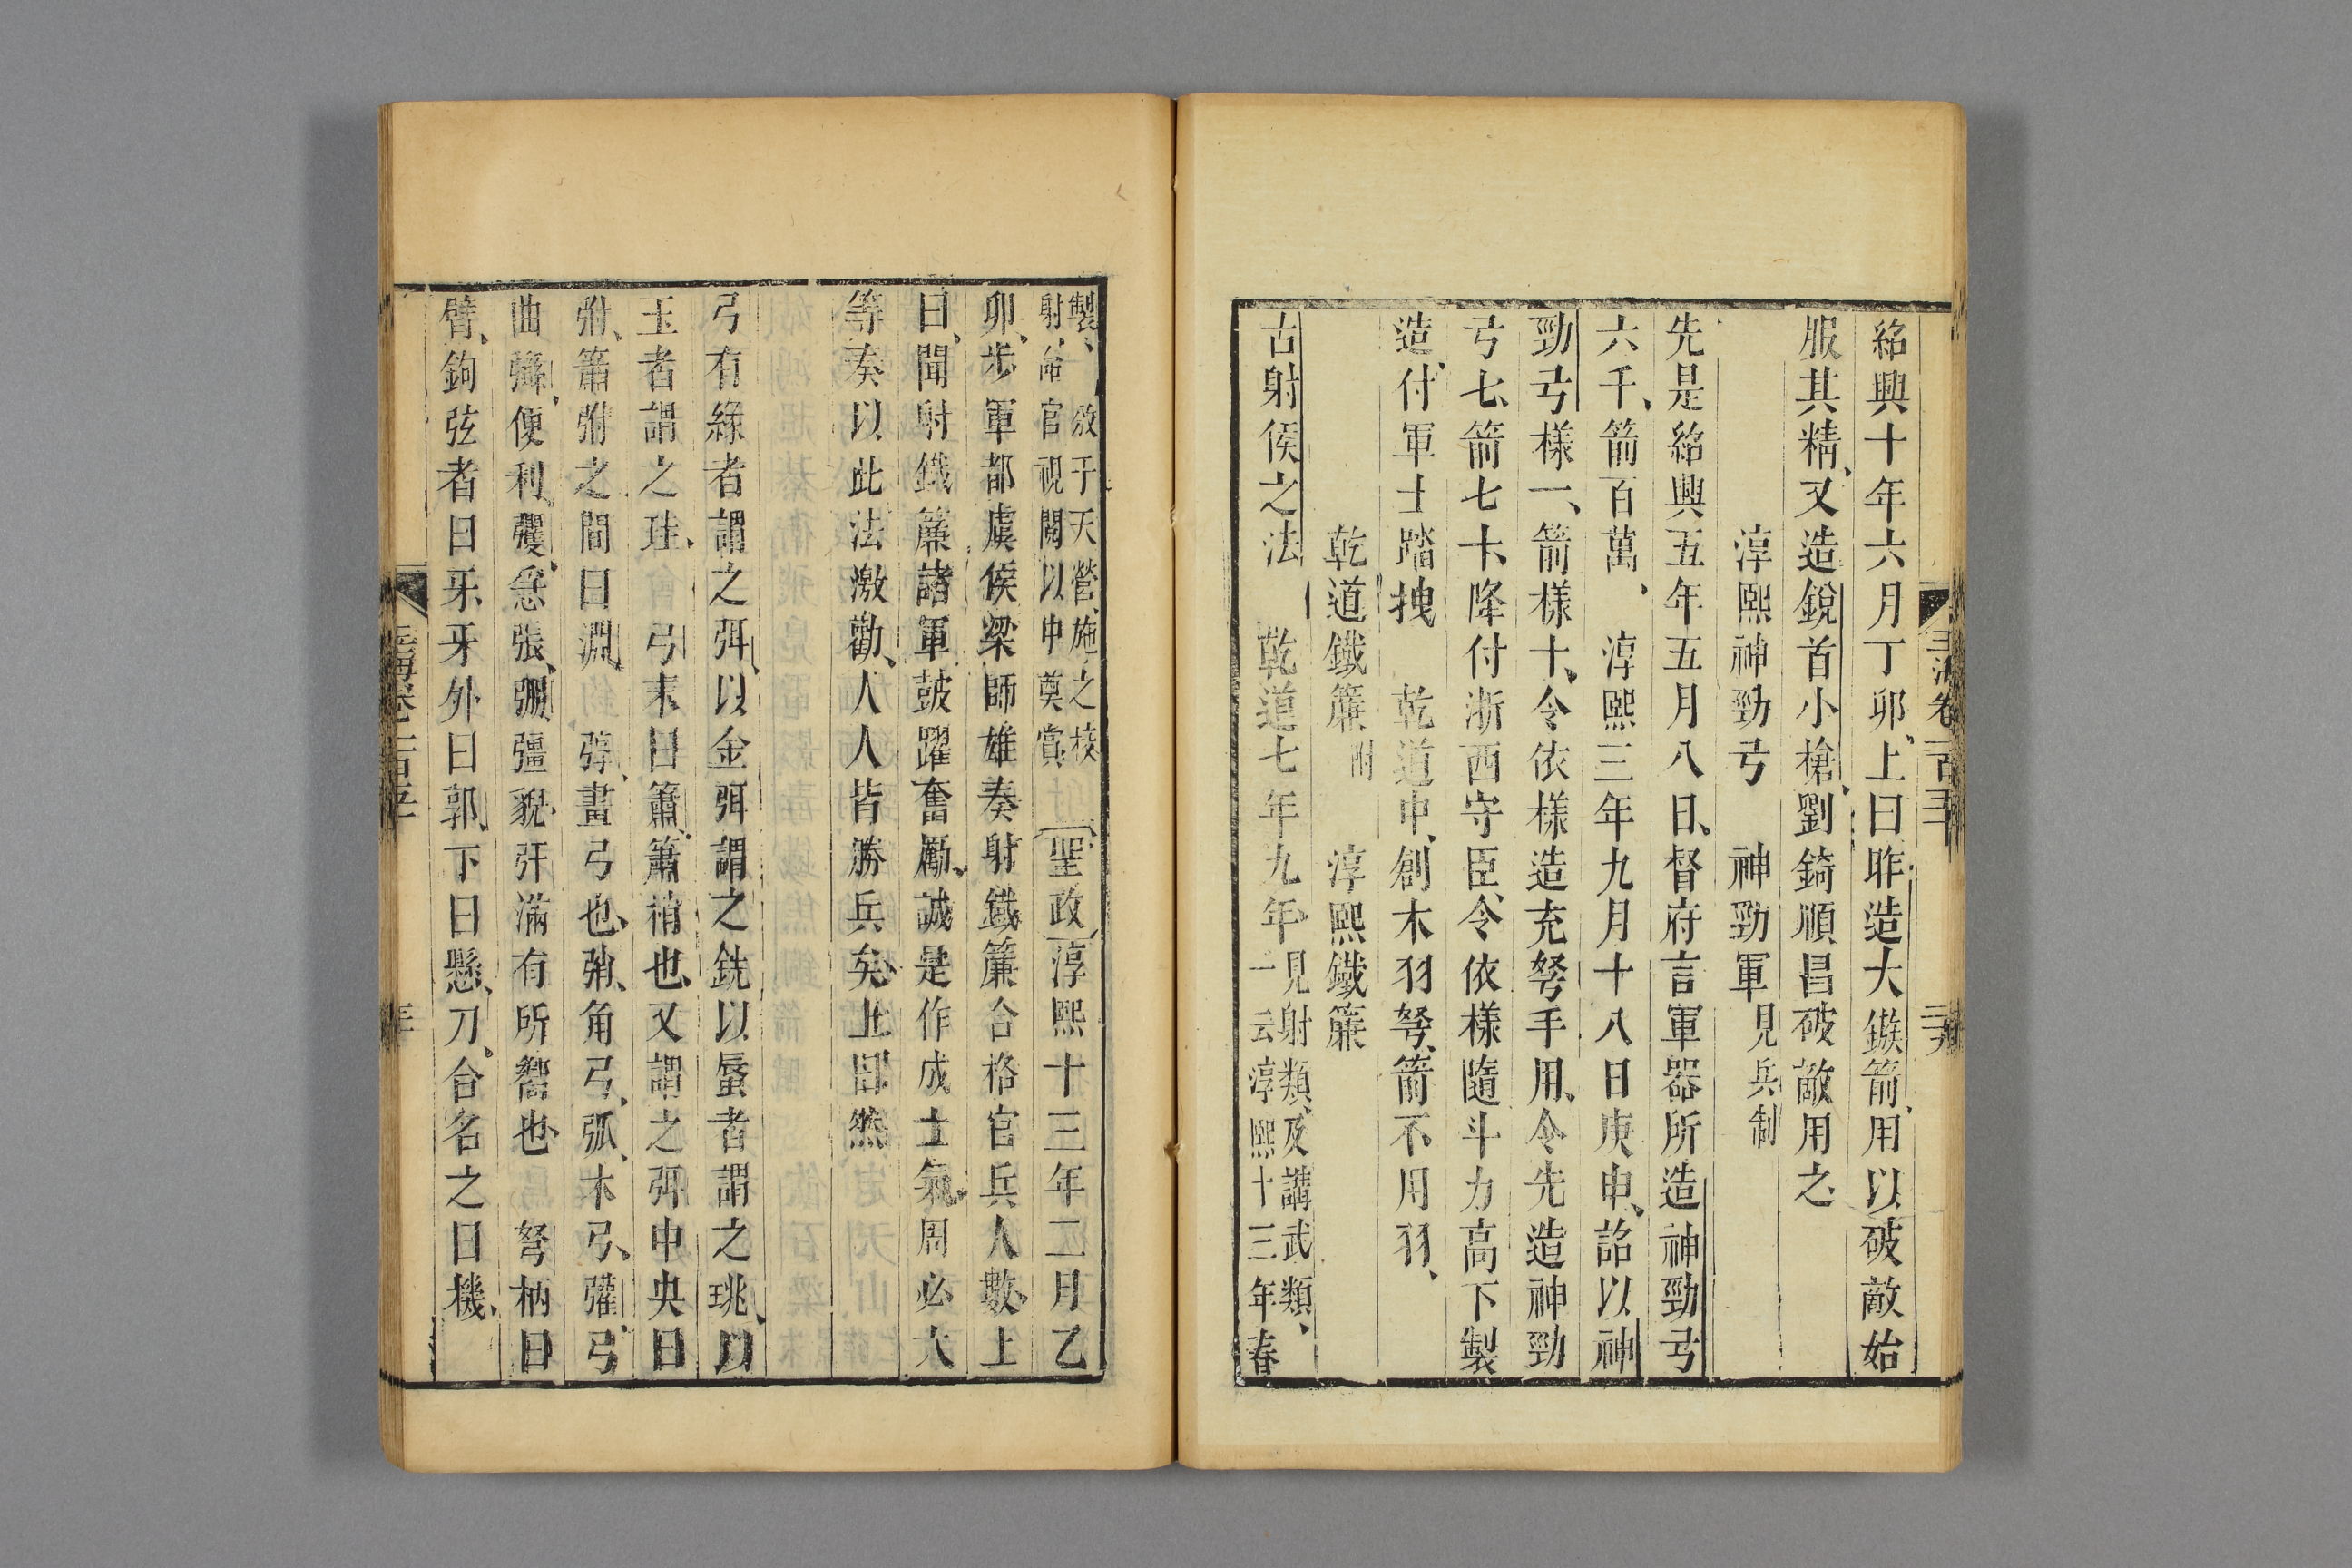 紹興十年六月丁卯上曰昨造大鏃箭用以破敵始
服其精又造銳首小槍劉錡順昌破敵用之
淳熙神勁弓　神勁軍見兵制
先是紹興五年五月八日督府言軍器所造神勁弓
六千箭百萬　淳熙三年九月十八日庚申詔以神
勁弓樣一箭樣十令依樣造充弩手用令先造神勁
弓七箭七十降付浙西守臣令依樣隨斗力高下製
造付軍士踏拽　乾道中創木羽弩箭不用羽
乾道鐵簾附　淳熙鐵簾
古射侯之法　乾道七年九年見射類及講武類
一云淳熙十三年春
製　放于天營施之校
射命官視閱以申奠賞
聖政淳熙十三年二月乙
卯步軍都虞侯梁師雄奏射鐵簾合格官兵人數上
曰聞射鐵簾諸軍鼓躍奮勵誠是作成士氣周必大
等奏以此法激勸人人皆勝兵矣上曰然
弓有緣者謂之弭以金弭謂之銑以蜃者謂之珧以
玉者謂之珪　弓末曰簫簫梢也又謂之弭中央曰
弣簫弣之間曰淵　弴畫弓也弰角弓弧木弓彏弓
曲彇便利彏急張弸彊貌弙滿有所嚮也　弩柄曰
臂鉤弦者曰牙牙外曰郭下曰懸刀合名之曰機